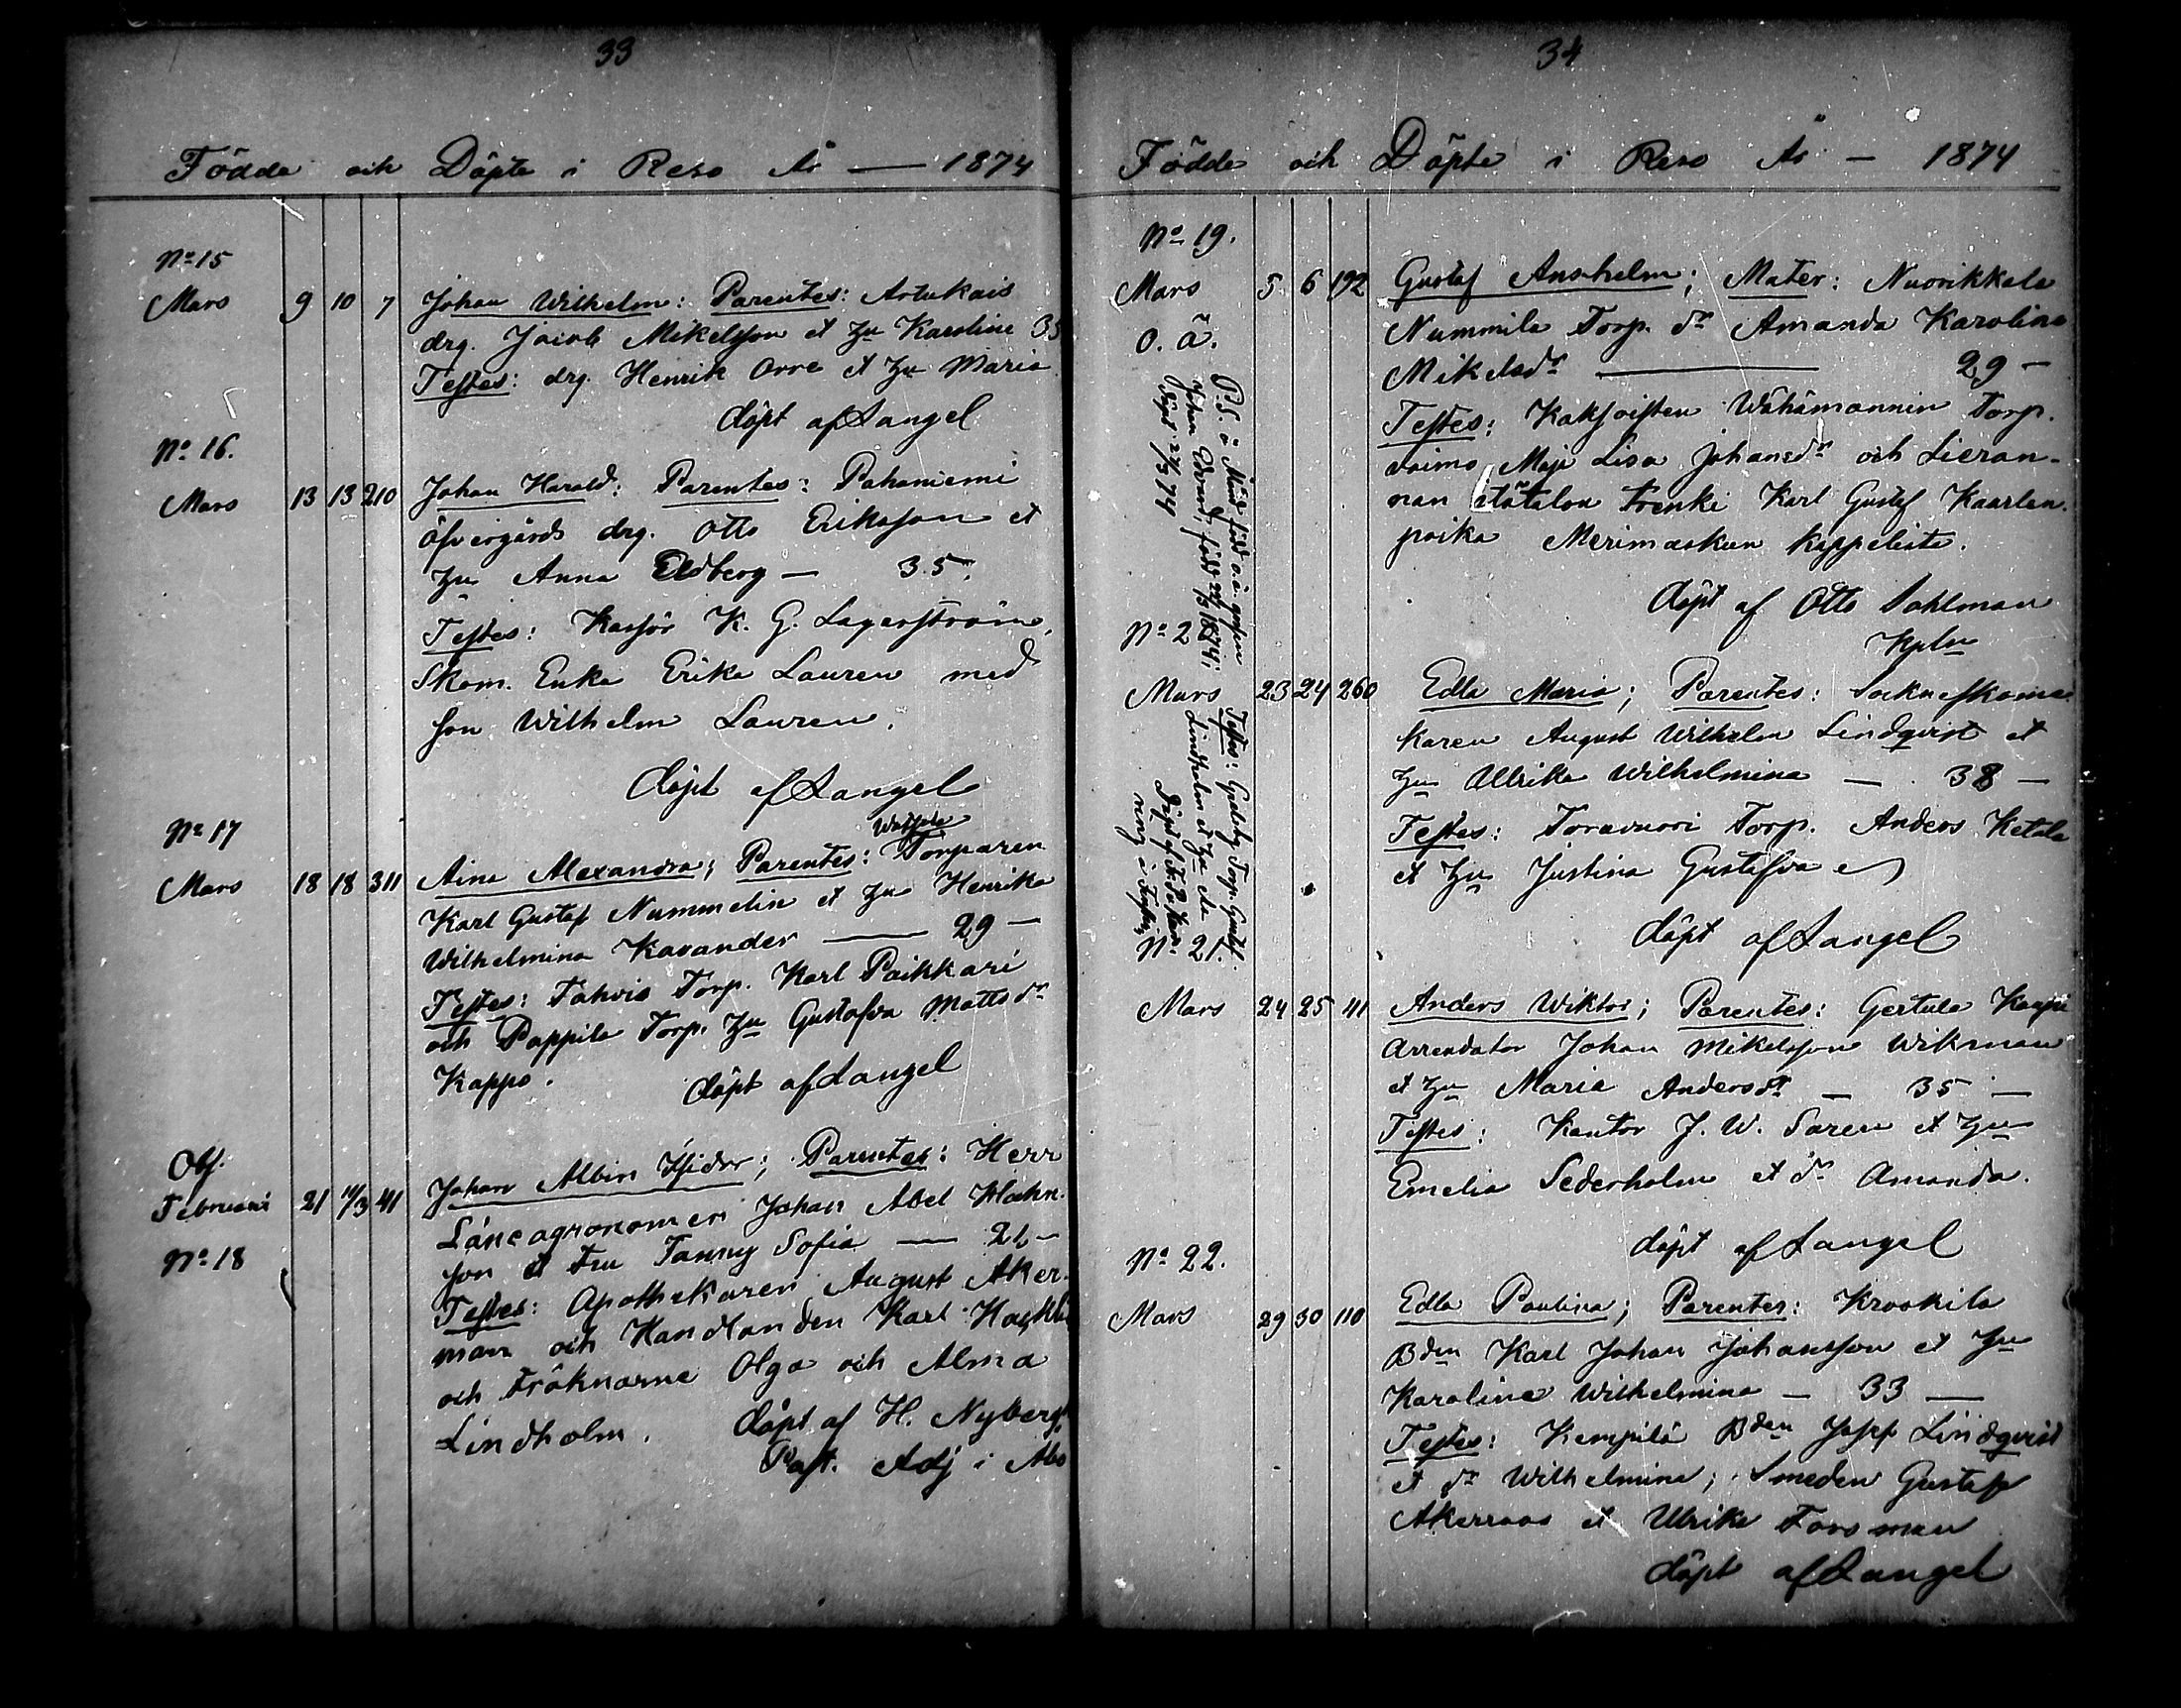 33
Födde och Döpte i Reso År — 1874
No 15
Mars 9 10 7 Johan Wilhelm: Parentes: Artukais
drg. Jacob Mikelsson et hu Karolina 35
Testes: drg. Henrik Orre et hu Maria
döpt af Langel
No 16.
Mars 13 13 210 Johan Harald: Parentes: Pahaniemi
öfvergårds drg. Otto Eriksson et
hu Anna Edberg — 35.
Testes: Karsör K. G. Lagerström,
Skom. Enka Erika Lauren med
son Wilhelm Lauren.
döpt af Langel
No 17
Mars 18 18 311 Aina Alexandra; Parentes: Torparen
Karl Gustaf Nummelin et hu Henrika
Wilhelmina Kavander — 29 —
Testes: Tahvis Torp. Karl Paikkari
och Pappila Torp. hu Gustafva Mattsdr
Kappo.
döpt af Langel
Obs.
Februari 21 14/3 41 Johan Albin Isidor; Parentes: Herr
No 18
Läneagronomen Johan Abel
son et Fru Fanny Sofia — 21 —
Testes: Apothekaren August Åker-
man och Handlanden Karl
och Fröknarne Olga och Alma
Lindholm.
döpt af H. Nyberg.
Past. Adj i Åbo
34
Födde och Döpte i Reso År — 1874
No 19.
Mars 5 6 192 Gustaf Anshelm; Mater: Nuorikkala
o. ä.
Nummila Torp. dr Amanda Karolina
Mikelsdr — 29 —
Testes: Kaksoisten Wähämannin Torp.
vaimo Maja Lisa Johansdr och Lieran-
nan ätätalon trenki Karl Gustaf Kaarlen-
poika Merimaskun kappelista.
döpt af Otto Sahlman
Kpln
P.S. o. ä. gossen
Johan Edvard, född 1874;
döpt 27/3 74
Testes: Torp. Gustaf
Lindholm et hu
Döpt af
No 2
Mars 23 24 260 Edla Maria; Parentes: Sockneskoma-
karen August Wilhelm Lindqvist et
hu Ulrika Wilhelmina — 38 —
Testes: Toravuori Torp. Anders Ketala
et hu Justina Gustafva
döpt af Langel
No 21.
Mars 24 25 41 Anders Wiktor; Parentes: Gertula
Arrendator Johan Mikelsson Wikman
et hu Maria Andersdr — 35 —
Testes: Kantor J. W. Saren et hu
Emelia Sederholm et dr Amanda.
döpt af Langel
No 22.
Mars 29 30 110 Edla Paulina; Parentes: Krookila
Bden Karl Johan Johansson et hu
Karolina Wilhelmina — 33 —
Testes: Kempilä Bden Josef Lindqvist
et dr Wilhelmina; Smeden Gustaf
Åkerroos et Ulrika Forsman
döpt af Langel